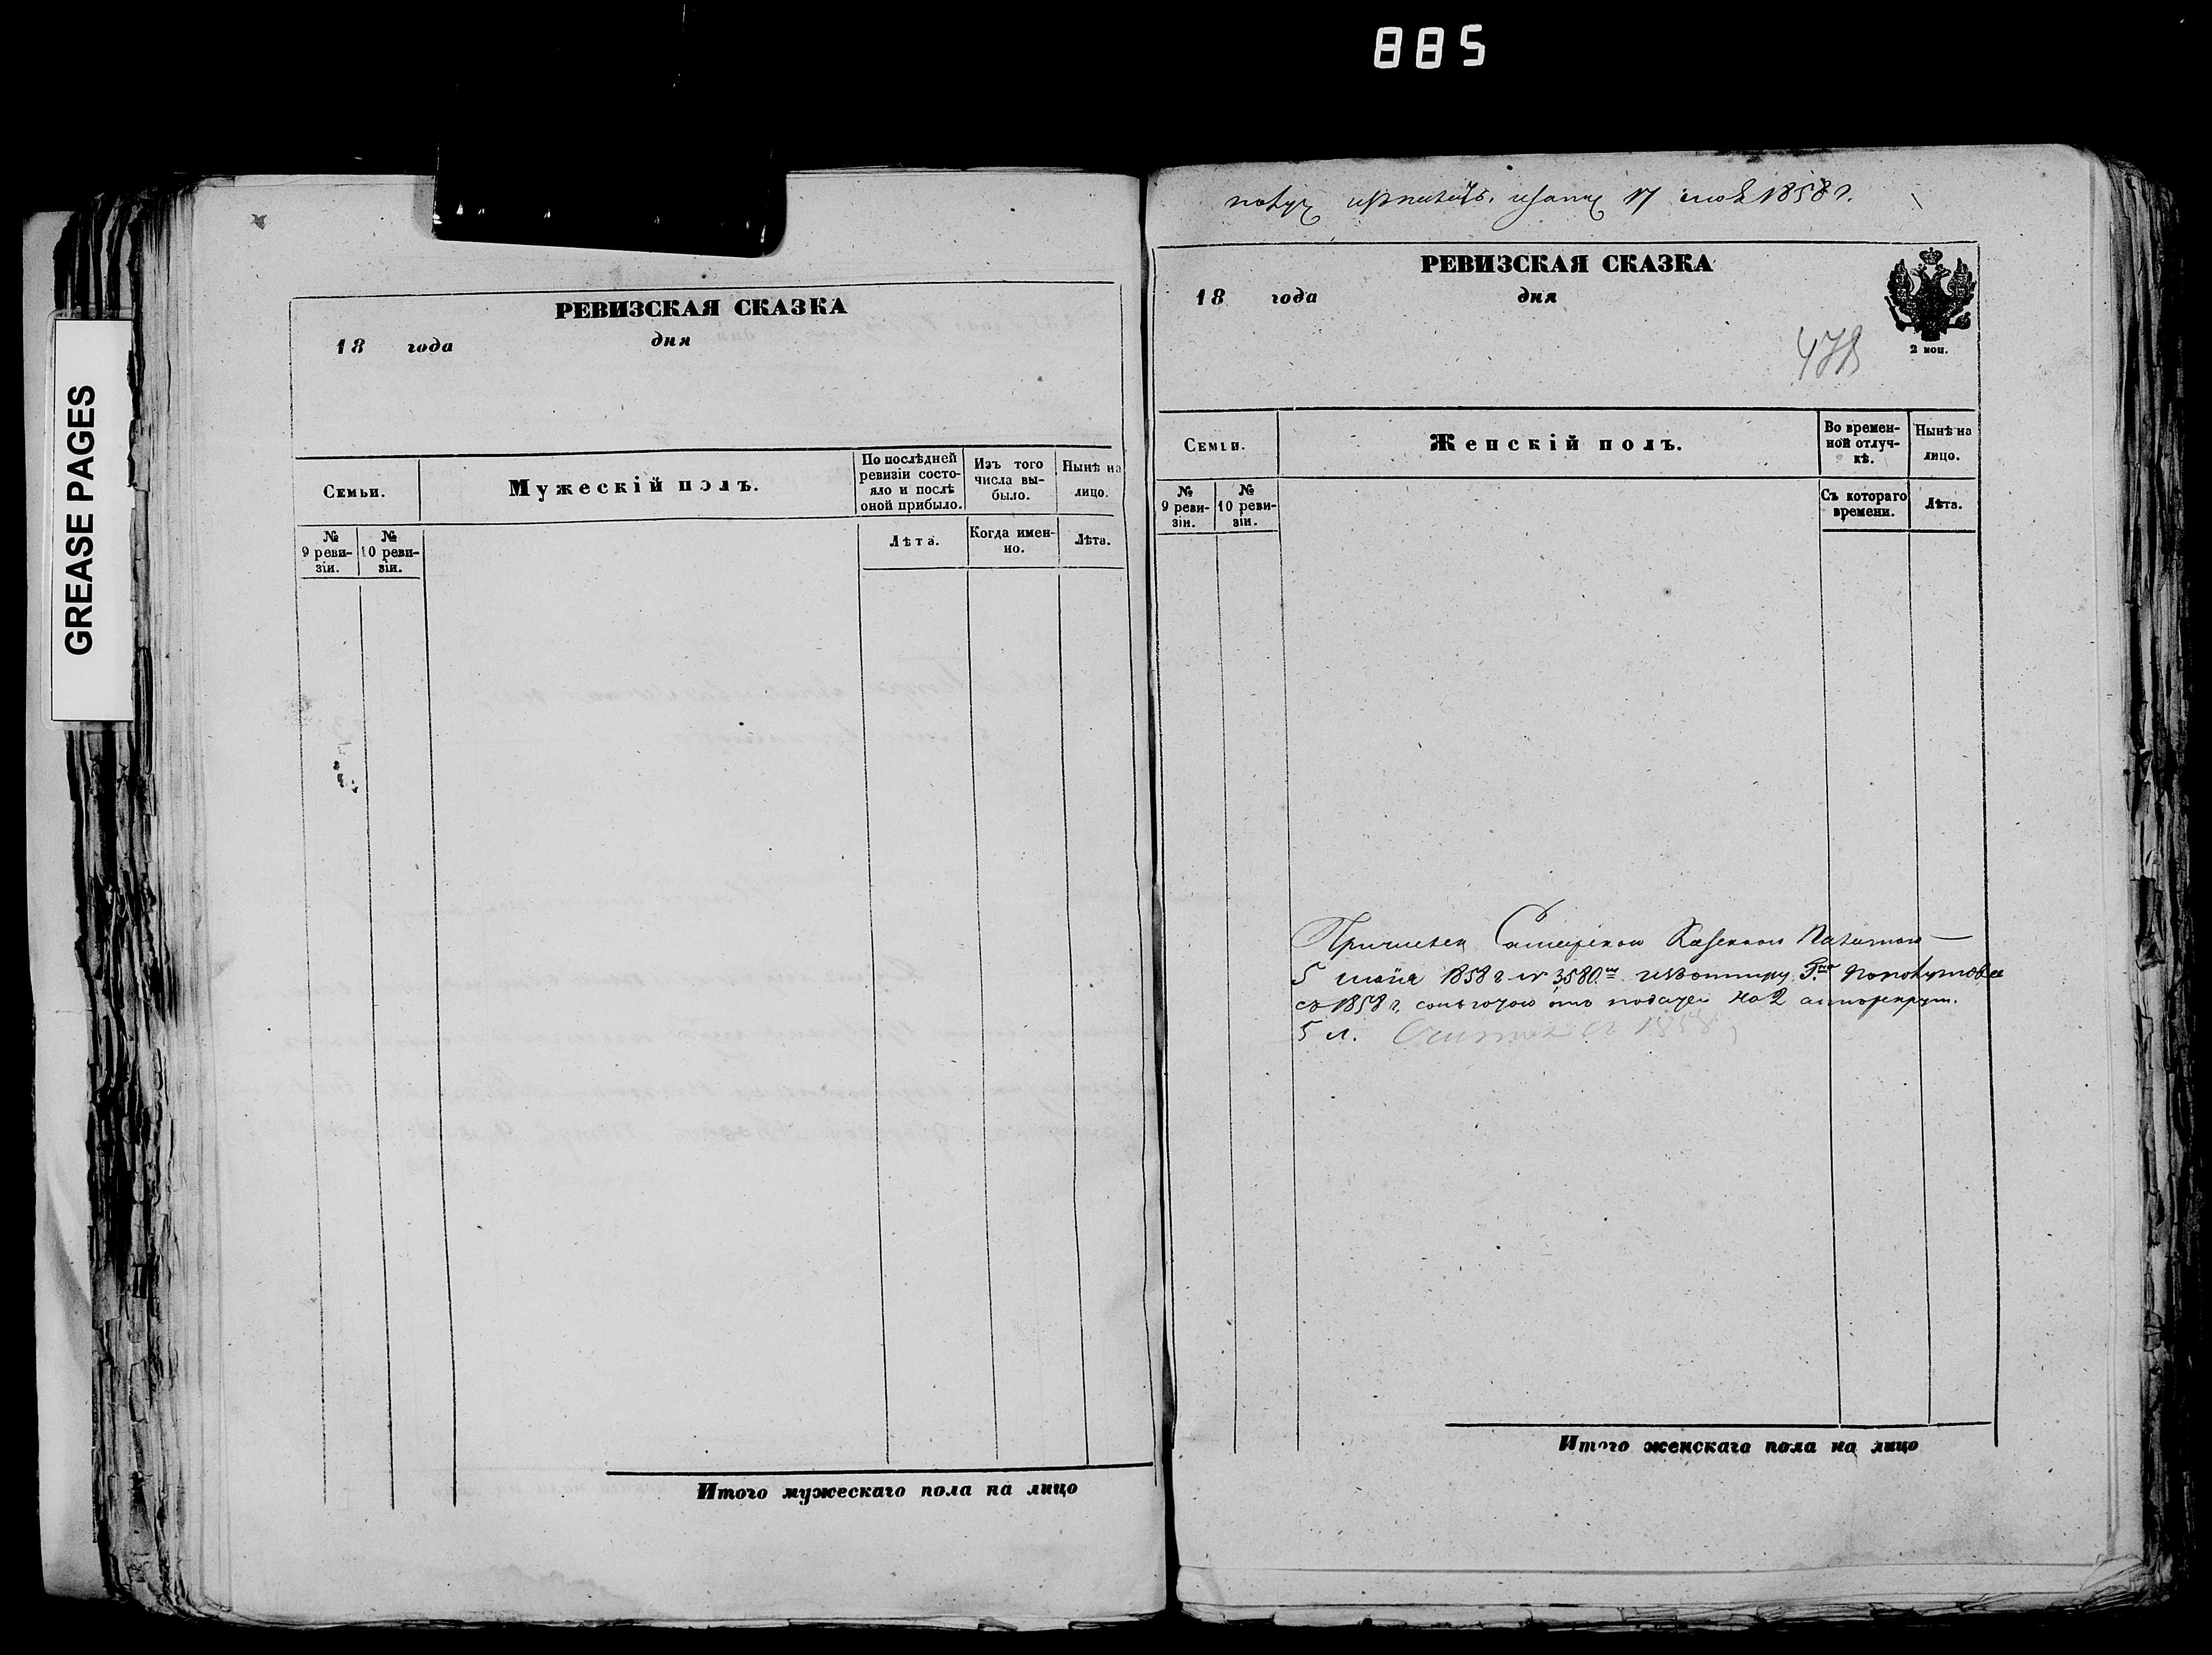 885
GREASE PAGES
РЕВИЗСКАЯ СКАЗКА
18 года дня
Семьи.
Мужескій полъ.
По послѣдней
ревизіи состо-
яло и послѣ
оной прибыло.
Изъ того
числа вы-
было.
Нынѣ на
лицо.
№
9 реви-
зіи.
№
10 реви-
зіи.
Лѣта.
Когда имен-
но.
Лѣта.
Итого мужескаго пола на лицо
17 1858 г.
РЕВИЗСКАЯ СКАЗКА
18 года дня
2 коп.
478
Семьи.
Женскій полъ.
Во времен-
ной отлуч-
кѣ.
Нынѣ на
лицо.
№
9 реви-
зіи.
№
10 реви-
зіи.
Съ котораго
времени.
Лѣта.
Причислен Самарскою Казенною Палатою
5 1858 г 3580
съ 1858 г, съ льготою отъ податей на 2
5 л. 1858
Итого женскаго пола на лицо